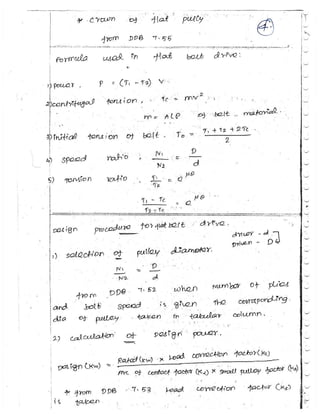 * crown of flat pully
4.
from DDB 7.55
Formula used in flat belt drive:
1) power, P = (T1 - T2) V
2) centrifugal tension, Tc = mv²
m = A L ρ of belt material.
3) Initial tension of belt. To = T1 + T2 + 2Tc / 2
4) speed ratio : N1/N2 = D/d
5) Tension ratio : T1/T2 = e^μθ
T1 - Tc / T2 - Tc = e^μθ
Design procedure for flat belt drive.
driver - d
Driven - D
1) selection of pulley diameter.
N1/N2 = D/d
from DDB 7.52 when number of plies
and belt speed is given the corresponding
dia of pulley taken in tabular column.
2) calculation of Design power.
Design (kw) = Rated (kw) * Load correction factor (Ks) / Arc of contact factor (Kα) * small pulley factor (Kd)
* from DDB 7.53 Load correction factor (Ks)
is taken